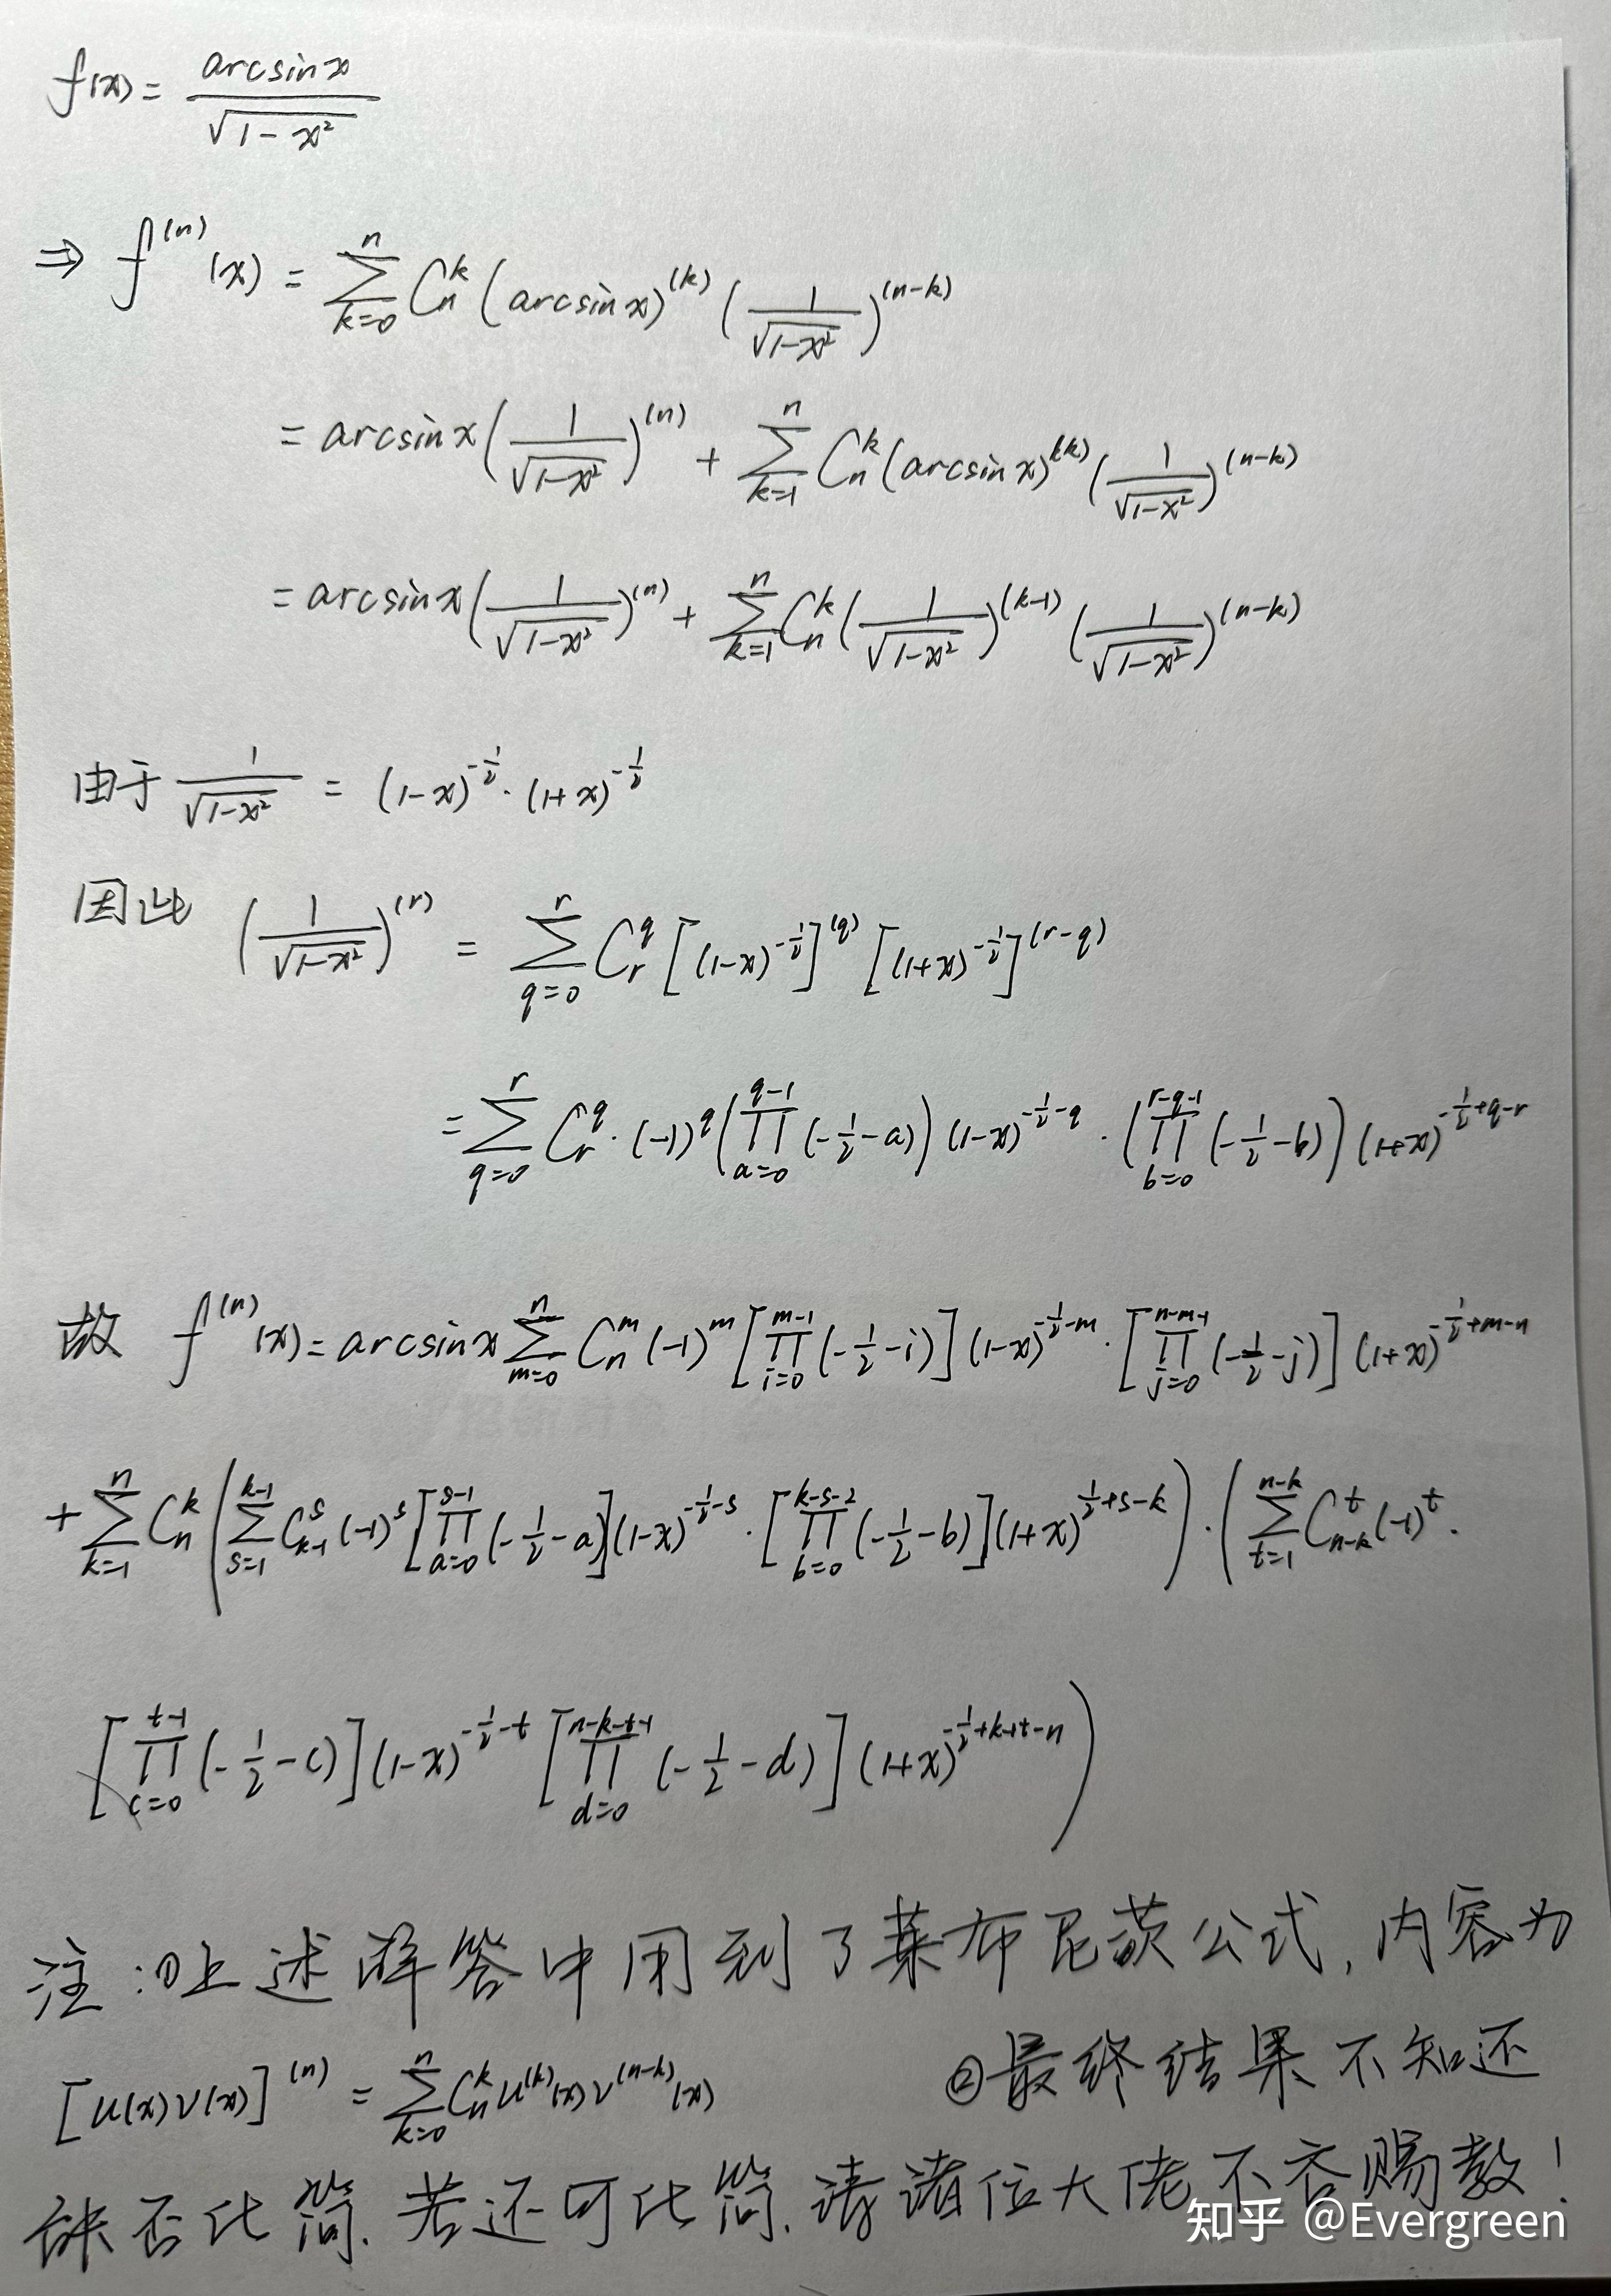 f(x) = arcsinx / √(1-x²)
⇒ f^(n)(x) = ∑_{k=0}^{n} C_n^k (arcsinx)^(k) (1/√(1-x²))^(n-k)
= arcsinx (1/√(1-x²))^(n) + ∑_{k=1}^{n} C_n^k (arcsinx)^(k) (1/√(1-x²))^(n-k)
= arcsinx (1/√(1-x²))^(n) + ∑_{k=1}^{n} C_n^k (1/√(1-x²))^(k-1) (1/√(1-x²))^(n-k)
由于 1/√(1-x²) = (1-x)^{-1/2} · (1+x)^{-1/2}
因此 (1/√(1-x²))^(r) = ∑_{q=0}^{r} C_r^q [(1-x)^{-1/2}]^(q) [(1+x)^{-1/2}]^(r-q)
= ∑_{q=0}^{r} C_r^q · (-1)^q (∏_{a=0}^{q-1} (-1/2-a)) (1-x)^{-1/2-q} · (∏_{b=0}^{r-q-1} (-1/2-b)) (1+x)^{-1/2+q-r}
故 f^(n)(x) = arcsinx ∑_{m=0}^{n} C_n^m (-1)^m [∏_{i=0}^{m-1} (-1/2-i)] (1-x)^{-1/2-m} · [∏_{j=0}^{n-m-1} (-1/2-j)] (1+x)^{-1/2+m-n}
+ ∑_{k=1}^{n} C_n^k (∑_{s=1}^{k-1} C_{k-1}^s (-1)^s [∏_{a=0}^{s-1} (-1/2-a)] (1-x)^{-1/2-s} · [∏_{b=0}^{k-s-2} (-1/2-b)] (1+x)^{1/2+s-k}) · (∑_{t=1}^{n-k} C_{n-k}^t (-1)^t ·
[∏_{c=0}^{t-1} (-1/2-c)] (1-x)^{-1/2-t} [∏_{d=0}^{n-k-t-1} (-1/2-d)] (1+x)^{-1/2+k+t-n})
注:①上述解答中用到了莱布尼茨公式,内容为
[u(x)v(x)]^(n) = ∑_{k=0}^{n} C_n^k u^(k)(x) v^(n-k)(x) ②最终结果不知还
能否化简.若还可化简,请诸位大佬不吝赐教!
知乎 @Evergreen